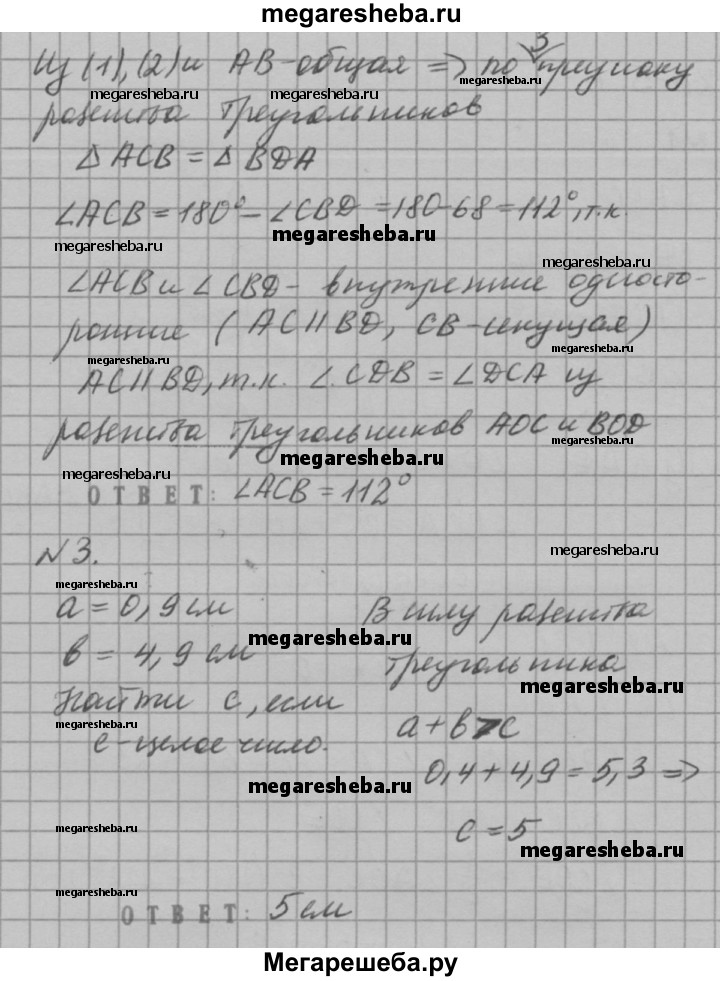 megaresheba.ru
Из (1), (2) и AB-общая => по 3 признаку
megaresheba.ru megaresheba.ru megaresheba.ru
равенства треугольников
Δ ACB = Δ BDA
megaresheba.ru
∠ACB = 180° - ∠CBD = 180-68 = 112°, т.к.
megaresheba.ru megaresheba.ru
megaresheba.ru
∠ACB и ∠CBD - внутренние односто-
ронние (AC || BD, CB-секущая)
megaresheba.ru megaresheba.ru
AC || BD, т.к. ∠CDB = ∠DCA из
равенства треугольников AOC и BOD
megaresheba.ru megaresheba.ru
megaresheba.ru
ОТВЕТ: ∠ACB = 112°
N 3.
megaresheba.ru
megaresheba.ru
a = 0,9 см В силу равенства
megaresheba.ru
в = 4,9 см треугольника
megaresheba.ru
Найти c, если
megaresheba.ru
a + в > c
c-целое число.
0,4 + 4,9 = 5,3 =>
megaresheba.ru
c = 5
megaresheba.ru
megaresheba.ru
megaresheba.ru
ОТВЕТ: 5 см
Мегарешеба.ру